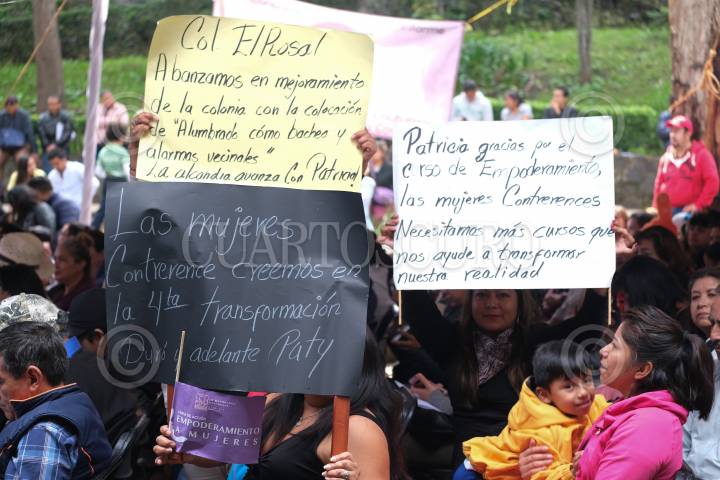 Col El Rosal
Abanzamos en mejoramiento
de la colonia con la colocación
de "Alumbrado cómo bacheo y
alarmas vecinales"
La alcandia avanza Con Patricia!
Patricia gracias por el
curso de Empoderamiento,
las mujeres Contrerences
Necesitamos más cursos que
nos ayude a transformar
nuestra realidad
Las mujeres
Contrerence creemos en
la 4ta transformación
Duro y adelante Paty
CUARTOSCURO
EMPODERAMIENTO
A MUJERES